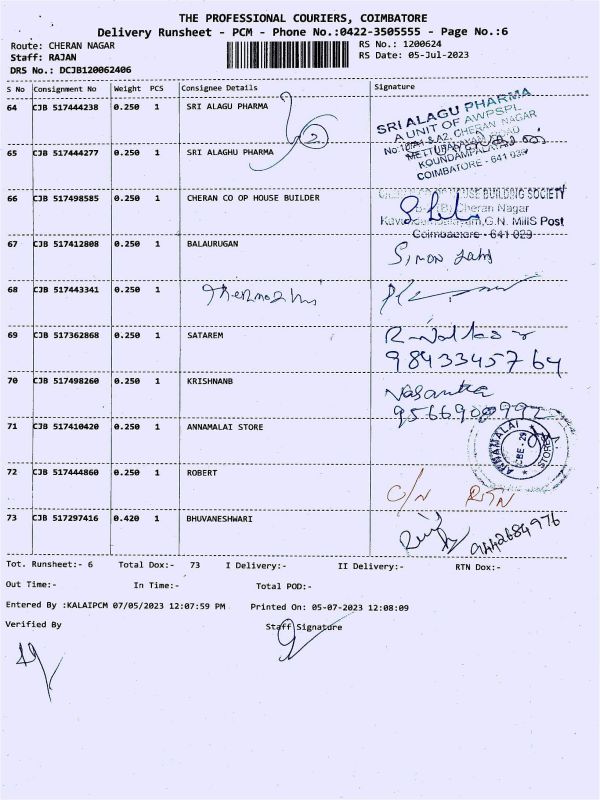 THE PROFESSIONAL COURIERS, COIMBATORE
Delivery Runsheet - PCM - Phone No.:0422-3505555 - Page No.:6
Route: CHERAN NAGAR RS No.: 1200624
Staff: RAJAN RS Date: 05-Jul-2023
DRS No.: DCJB120062406
S No Consignment No Weight PCS Consignee Details Signature
64 CJB 517444238 0.250 1 SRI ALAGU PHARMA
2
SRI ALAGU PHARMA
A UNIT OF AWPSPL
COIMBATORE - 641 029
65 CJB 517444277 0.250 1 SRI ALAGHU PHARMA
66 CJB 517498585 0.250 1 CHERAN CO OP HOUSE BUILDER
HOUSE BUILDING SOCIETY
Cheran Nagar
G.N. Mills Post
Coimbatore - 641 029
67 CJB 517412808 0.250 1 BALAURUGAN
68 CJB 517443341 0.250 1
69 CJB 517362868 0.250 1 SATAREM
9843345764
70 CJB 517498260 0.250 1 KRISHNANB
Vasantha
71 CJB 517410420 0.250 1 ANNAMALAI STORE
ANNAMALAI STORES
72 CJB 517444860 0.250 1 ROBERT
C/N RTN
73 CJB 517297416 0.420 1 BHUVANESHWARI
9442684976
Tot. Runsheet:- 6 Total Dox:- 73 I Delivery:- II Delivery:- RTN Dox:-
Out Time:- In Time:- Total POD:-
Entered By :KALAIPCM 07/05/2023 12:07:59 PM Printed On: 05-07-2023 12:08:09
Verified By Staff Signature